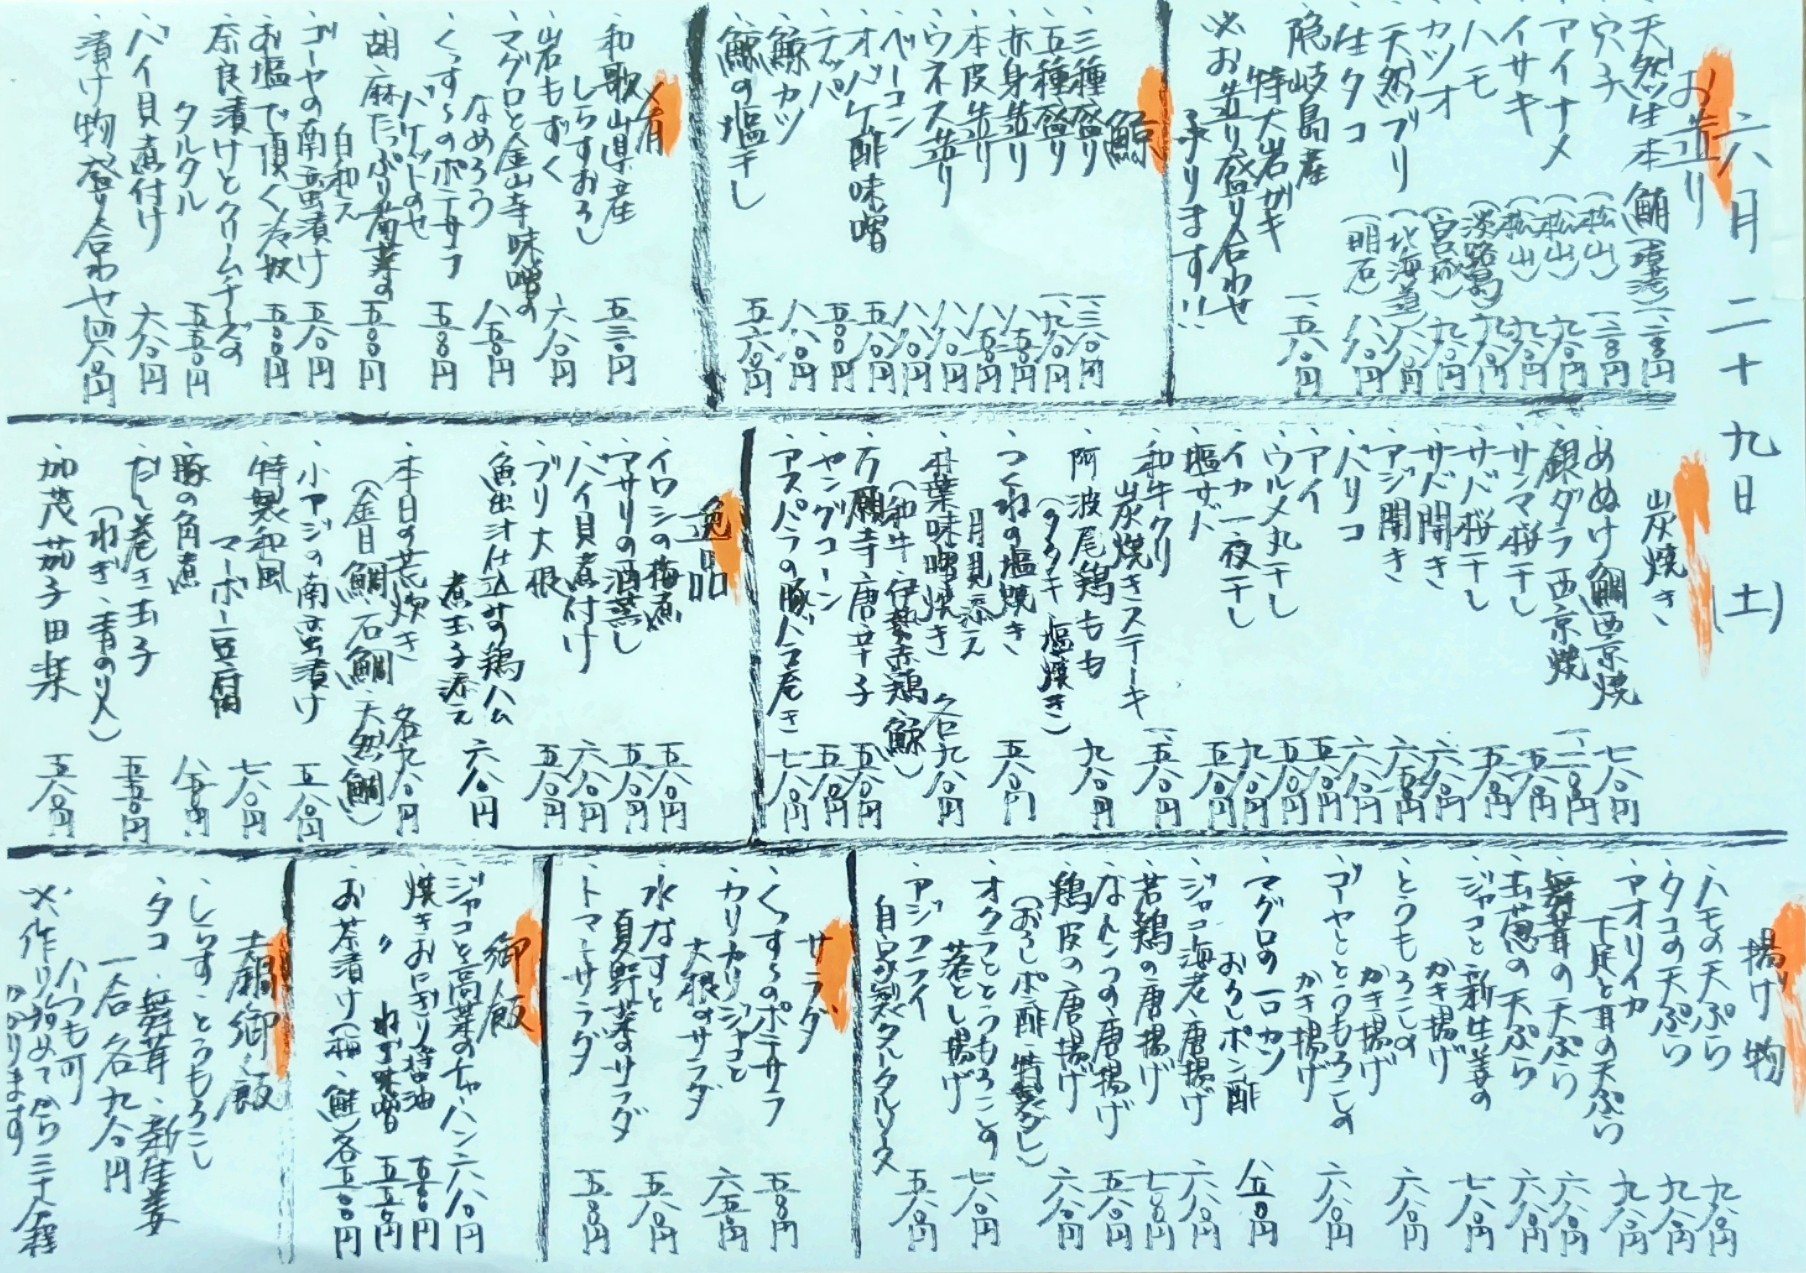 六月二十九日(土)
お造り
・天然生本鮪(境港)
・穴子(松山)
・アイナメ(松山)九八〇円
・イサキ(松山)九八〇円
・ハモ(淡路島)九八〇円
・カツオ(宮城)九八〇円
・天然ブリ(北海道)八八〇円
・生タコ(明石)八八〇円
・隠岐島産
特大岩ガキ 一、五八〇円
※お造り盛り合わせ
承ります!!
鯨
・三種盛り
・五種盛り
・赤身造り 八五〇円
・本皮造り 八五〇円
・ウネス造り 八八〇円
・ベーコン 八八〇円
・オバケ酢味噌 五八〇円
・テッパ 五〇〇円
・鯨カツ 八八〇円
・鯨の塩干し
肴
・和歌山県産
しらすおろし
・岩もずく 六八〇円
・マグロと金山寺味噌の
なめろう 八五〇円
・くっすらのポテサラ
バケットのせ 五〇〇円
・胡麻たっぷり菊菜の
白和え 五〇〇円
・ゴーヤの南蛮漬け 五八〇円
・お塩で頂く冷奴 五〇〇円
・奈良漬けとクリームチーズの
タルタル 五五〇円
・バイ貝煮付け 六八〇円
・漬け物盛り合わせ 四八〇円
炭焼き
・めぬけ鯛西京焼 七八〇円
・銀ダラ西京焼
・サンマ桜干し 五八〇円
・サバ桜干し 五八〇円
・サバ開き 六八〇円
・アジ開き 六五〇円
・バリコ 六八〇円
・アイ 五五〇円
・ウルメ丸干し 五五〇円
・イカ一夜干し 九八〇円
・塩サバ 五五〇円
・和牛クリ
炭焼きステーキ 一、五八〇円
・阿波尾鶏もも
(タタキ・塩焼き) 九八〇円
・つくねの塩焼き
月見添え 五八〇円
・朴葉味噌焼き 各九八〇円
(和牛・伊勢赤鶏・鯨)
・万願寺唐辛子 五八〇円
・ヤングコーン 五八〇円
・アスパラの豚バラ巻き 七八〇円
逸品
・イワシの梅煮 五八〇円
・アサリの酒蒸し 五八〇円
・バイ貝煮付け 六八〇円
・ブリ大根 五八〇円
・魚出汁仕込みの鶏ハム
煮玉子添え 六八〇円
・本日の荒炊き 各九八〇円
(金目鯛・石鯛・天然鯛)
・小アジの南蛮漬け 五八〇円
・特製和風
マーボー豆腐 七八〇円
・豚の角煮 八五〇円
・だし巻き玉子
(ねぎ・青のり入) 五五〇円
・加茂茄子田楽 五八〇円
揚げ物
・ハモの天ぷら 九八〇円
・タコの天ぷら 九八〇円
・アオリイカ
下足と耳の天ぷら 九八〇円
・舞茸の天ぷら 六八〇円
・玉葱の天ぷら 六八〇円
・ジャコと新生姜の
かき揚げ 七八〇円
・とうもろこしの
かき揚げ 六八〇円
・ゴーヤととうもろこしの
かき揚げ 六八〇円
・マグロの一口カツ
おろしポン酢 八五〇円
・ジャコ海老唐揚げ 六八〇円
・若鶏の唐揚げ 七〇〇円
・なんこつの唐揚げ 五八〇円
・鶏皮の唐揚げ 六八〇円
(おろしポン酢・特製ダレ)
・オクラととうもろこしの
落とし揚げ 七八〇円
・アジフライ
自家製タルタルソース 五八〇円
サラダ
・くっすらのポテサラ 五〇〇円
・カリカリジャコと
大根のサラダ 六五〇円
・水なすと
夏野菜サラダ 五八〇円
・トマトサラダ 五〇〇円
御飯
・ジャコと高菜のチャーハン 六八〇円
・焼きおにぎり醤油 五〇〇円
・〃 ねぎ味噌 五五〇円
・お茶漬け(梅・鮭)各五〇〇円
土鍋御飯
・しらす・とうもろこし
・タコ・舞茸・新生姜
一合 各九八〇円
八つも可
※作り始めてから三十分程
かかります